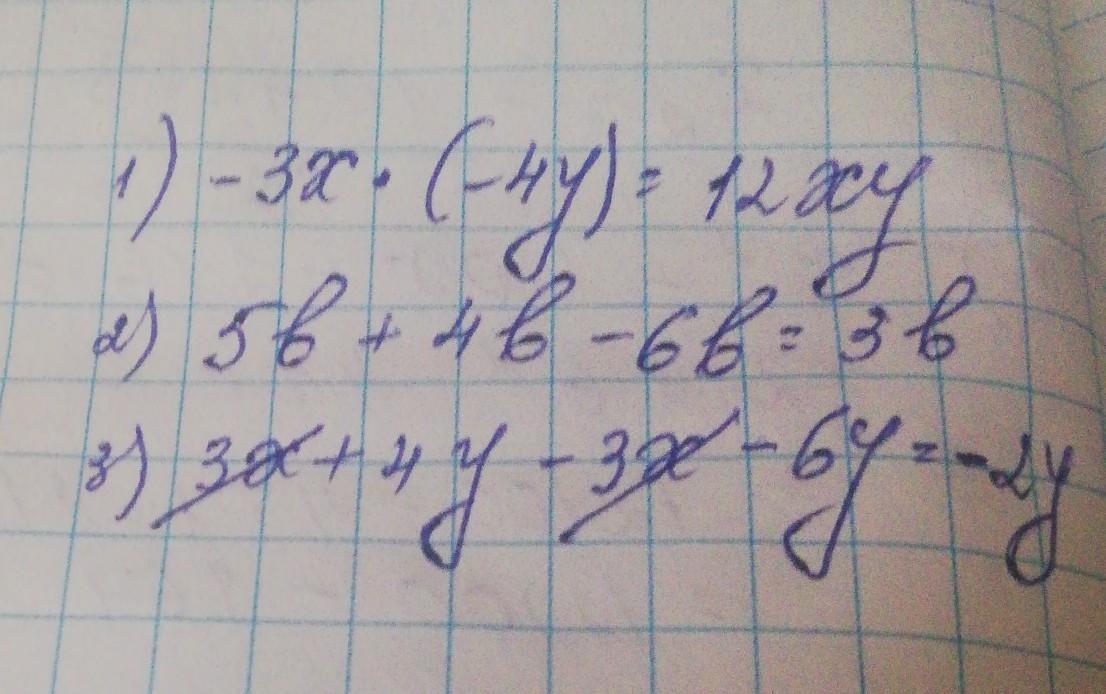 1) -3x · (-4y) = 12xy
2) 5b + 4b - 6b = 3b
3) 3x + 4y - 3x - 6y = -2y